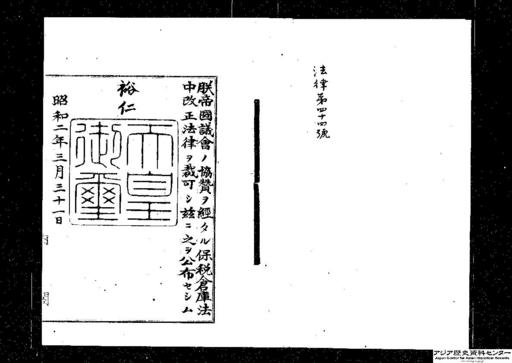 法律第四十四號
朕帝國議會ノ協贊ヲ經タル保税倉庫法
中改正法律ヲ裁可シ茲ニ之ヲ公布セシム
裕仁
天皇
御璽
昭和二年三月三十一日
アジア歴史資料センター
Japan Center for Asian Historical Records